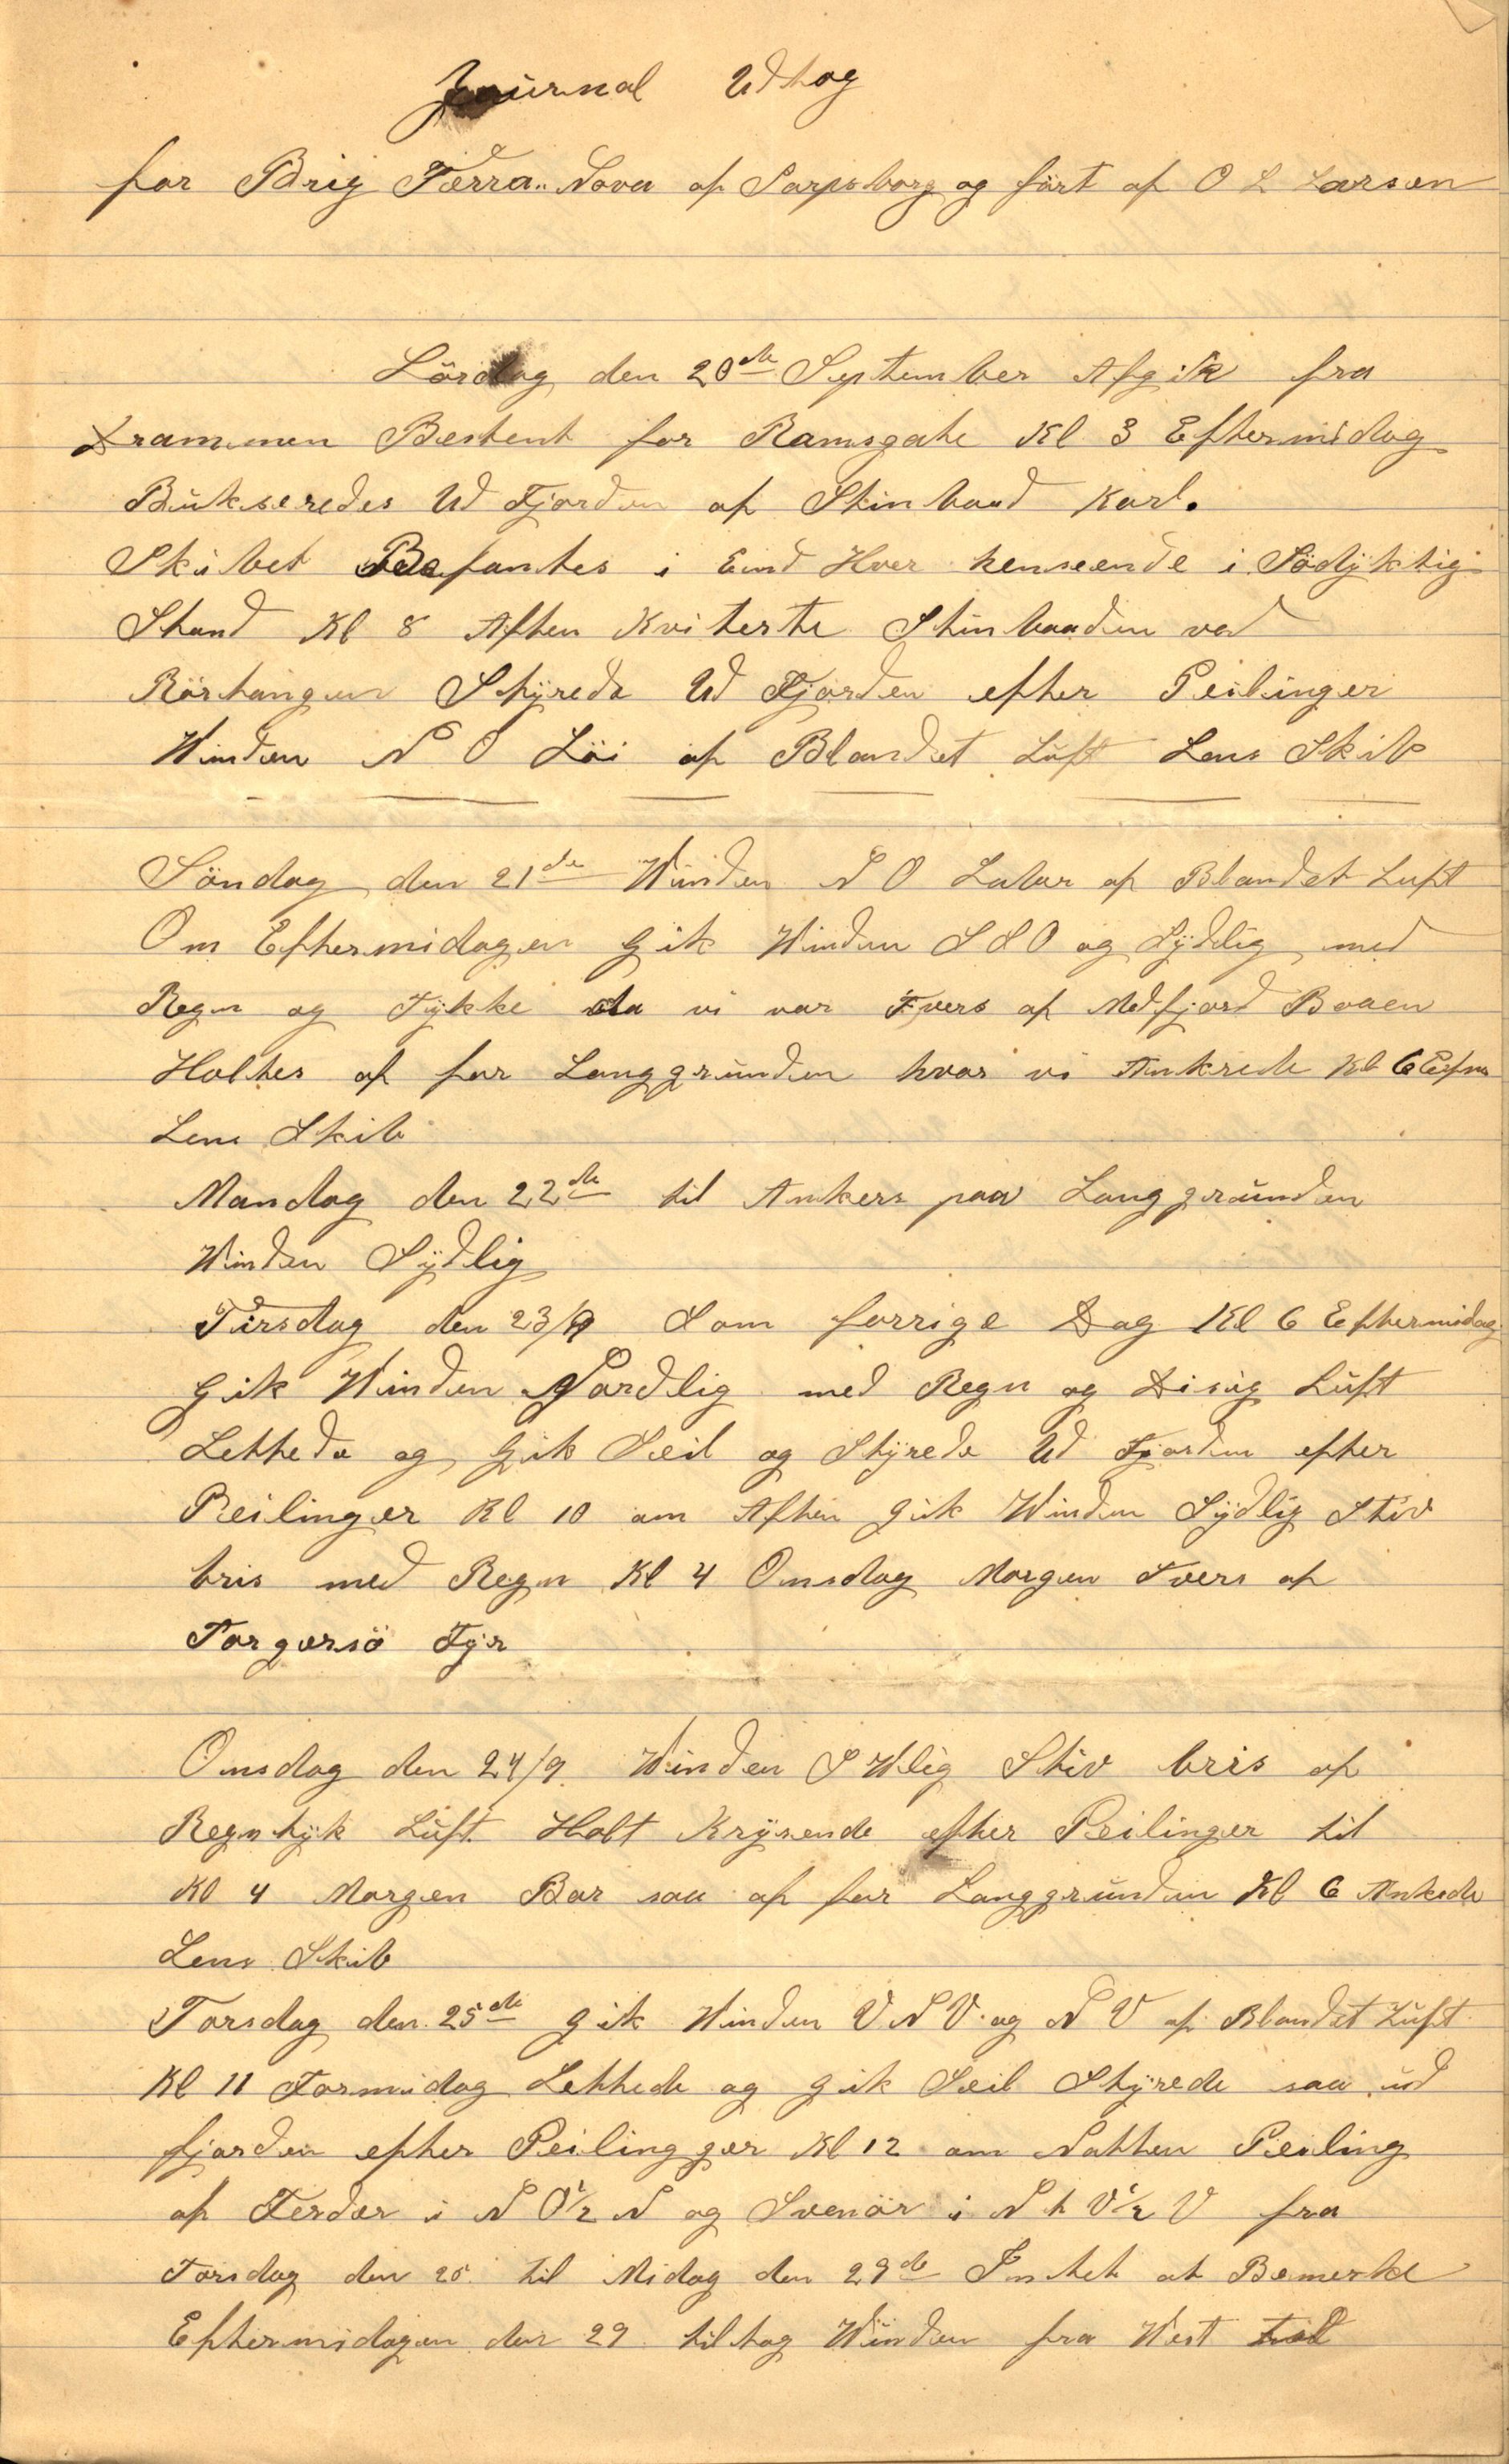 Journal Udtog
for Brig Tærra-Nova af Sarpsborg og fört af O L Larsen
Lördag den 20de September Afgik fra
Drammen Bestent for Ramsgate Kl 3 Eftermidag
Bukseredes Ud Fjorden af Stimbaad Karl.
Skibet Befantes i End Hver henseende i Södÿktig
Stand Kl 8 Aften Kviterte Stimbaaden ved
Rörtangen Stÿrede Ud Fjorden efter Peilinger
Winden N O Löi af Blandet Luft Lens Skib
Söndag den 21de Winden N O Laber af Blandet Luft
Om Eftermidagen Gik Winden S S O og Sÿdlig med
Regn og Tÿkke da vi var Tvers af Medfjord Boaen
Holtes af for Langgrunden hvor vi Ankrede Kl 6 Efm
Lens Skib
Mandag den 22de til Ankers paa Langgrunden
Winden Sÿdlig
Tirsdag den 23/9 Som forrige Dag Kl 6 Eftermidag
Gik Winden Nordlig med Regn og Disig Luft
Lettede og Gik Seil og Stÿrede Ud Fjorden efter
Peilinger Kl 10 om Aften Gik Winden Sÿdlig Stiv
bris med Regn Kl 4 Onsdag Morgen Tvers af
Torgersö Fÿr
Onsdag den 24/9 Winden S Wlig Stiv bris af
Regntÿk Luft Holt Krÿsende efter Peilinger til
Kl 4 Morgen Bar saa af for Langgrunden Kl 6 Ankrede
Lens Skib
Torsdag den 25de gik Winden V N V og N V af Blandet Luft
Kl 11 Formidag Lettede og gik Seil Stÿrede saa ud
fjorden efter Peilingger Kl 12 om Natten Peiling
af Ferder i N O 1/2 N og Svenör i N t V 1/2 V fra
Torsdag den 25 til Midag den 29de Intet at Bemerke
Eftermidagen den 29 tiltog Winden fra West